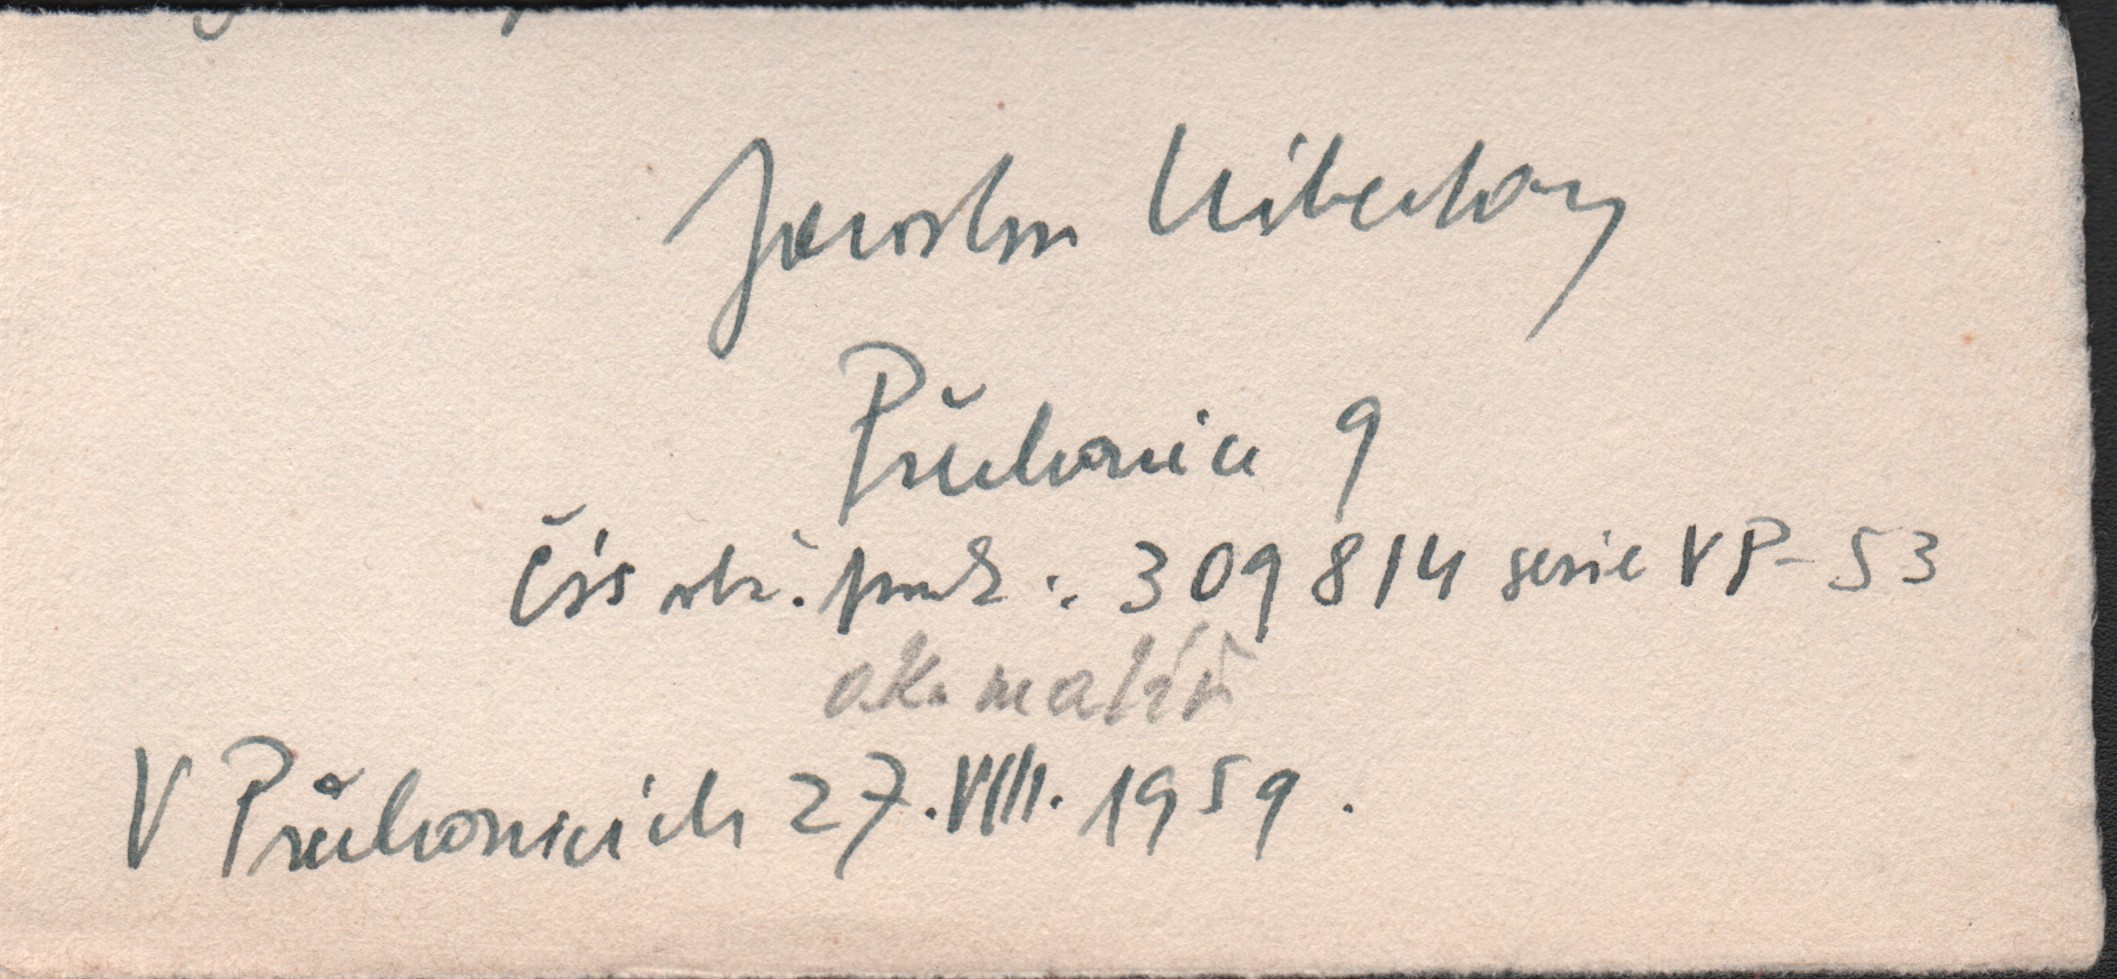 Jaroslav Klibecký
Průhonice 9
Čís obč. průk: 309814 serie VP-53
ak. malíř
V Průhonicích 27. VIII. 1959.